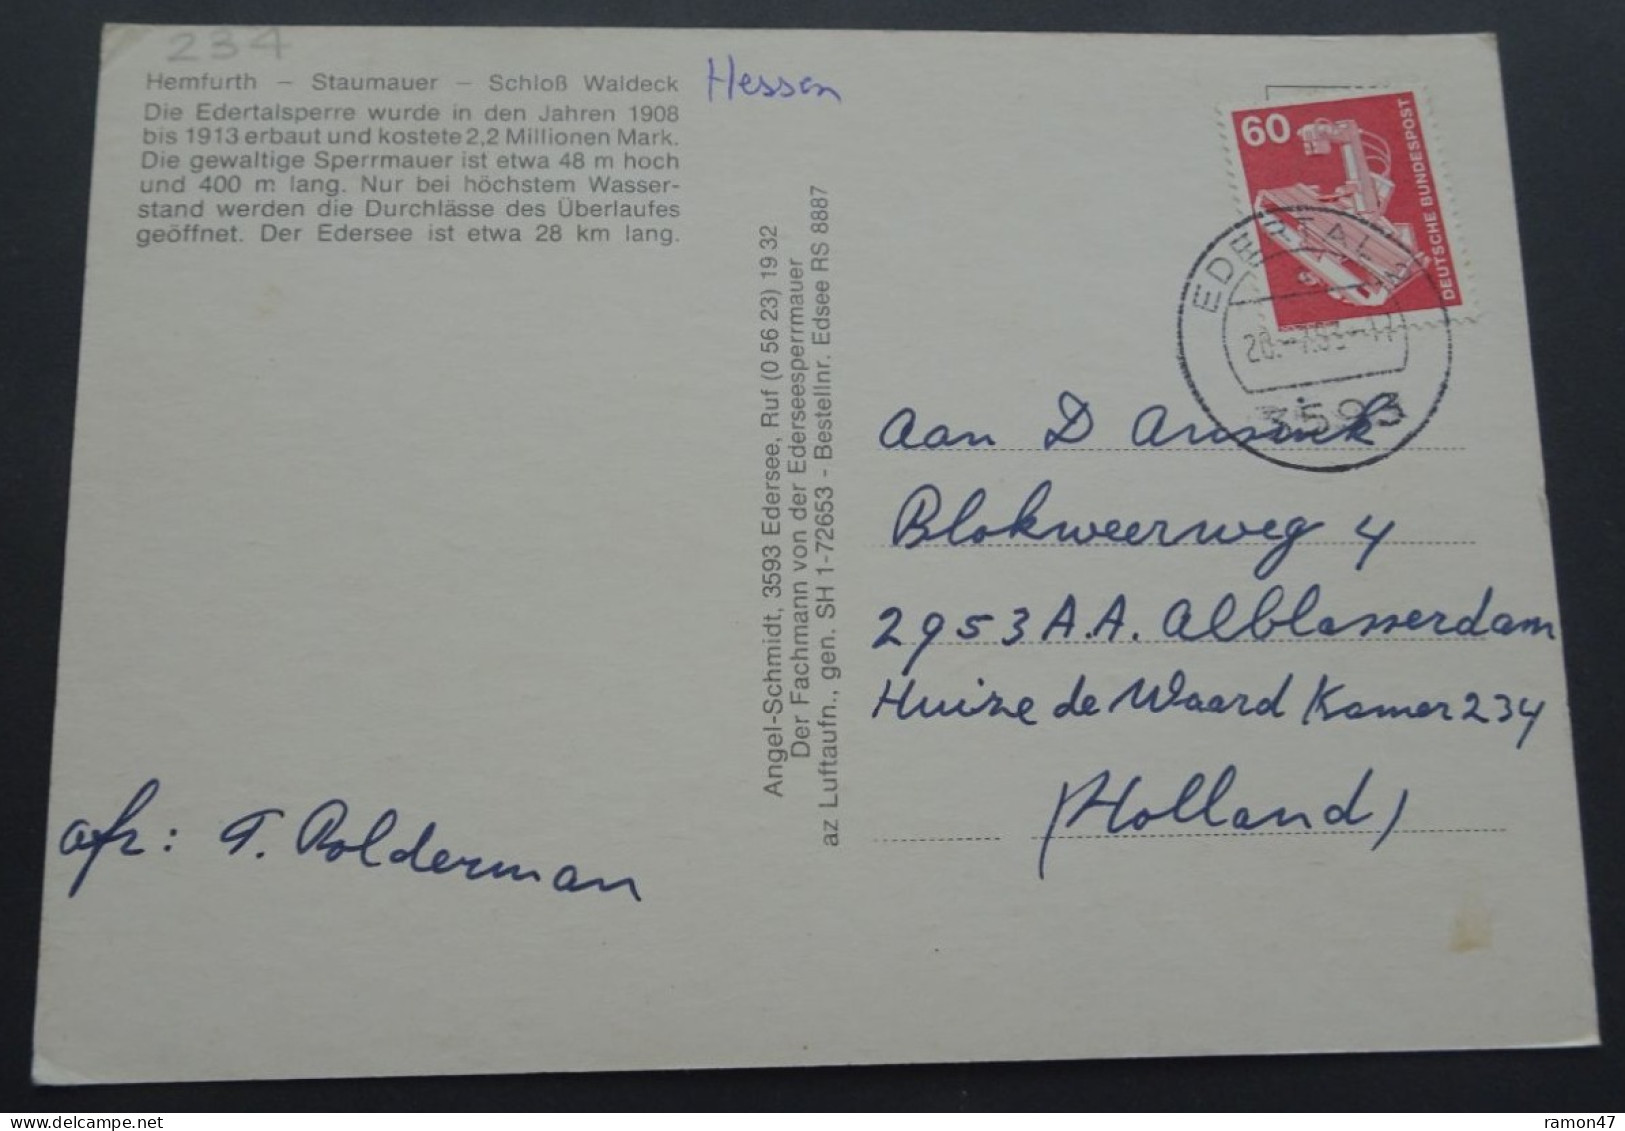 234
Hemfurth – Staumauer – Schloß Waldeck
Die Edertalsperre wurde in den Jahren 1908
bis 1913 erbaut und kostete 2,2 Millionen Mark.
Die gewaltige Sperrmauer ist etwa 48 m hoch
und 400 m lang. Nur bei höchstem Wasser-
stand werden die Durchlässe des Überlaufes
geöffnet. Der Edersee ist etwa 28 km lang.
Hessen
Angel-Schmidt, 3593 Edersee, Ruf (0 56 23) 19 32
Der Fachmann von der Ederseesperrmauer
az Luftaufn., gen. SH 1-72653 - Bestellnr. Edsee RS 8887
60
DEUTSCHE BUNDESPOST
EDERTAL
3593
aan D
Blokweerweg 4
2953 A.A. Alblasserdam
Huize de Waard Kamer 234
(Holland)
afz: T. Polderman
ramon47